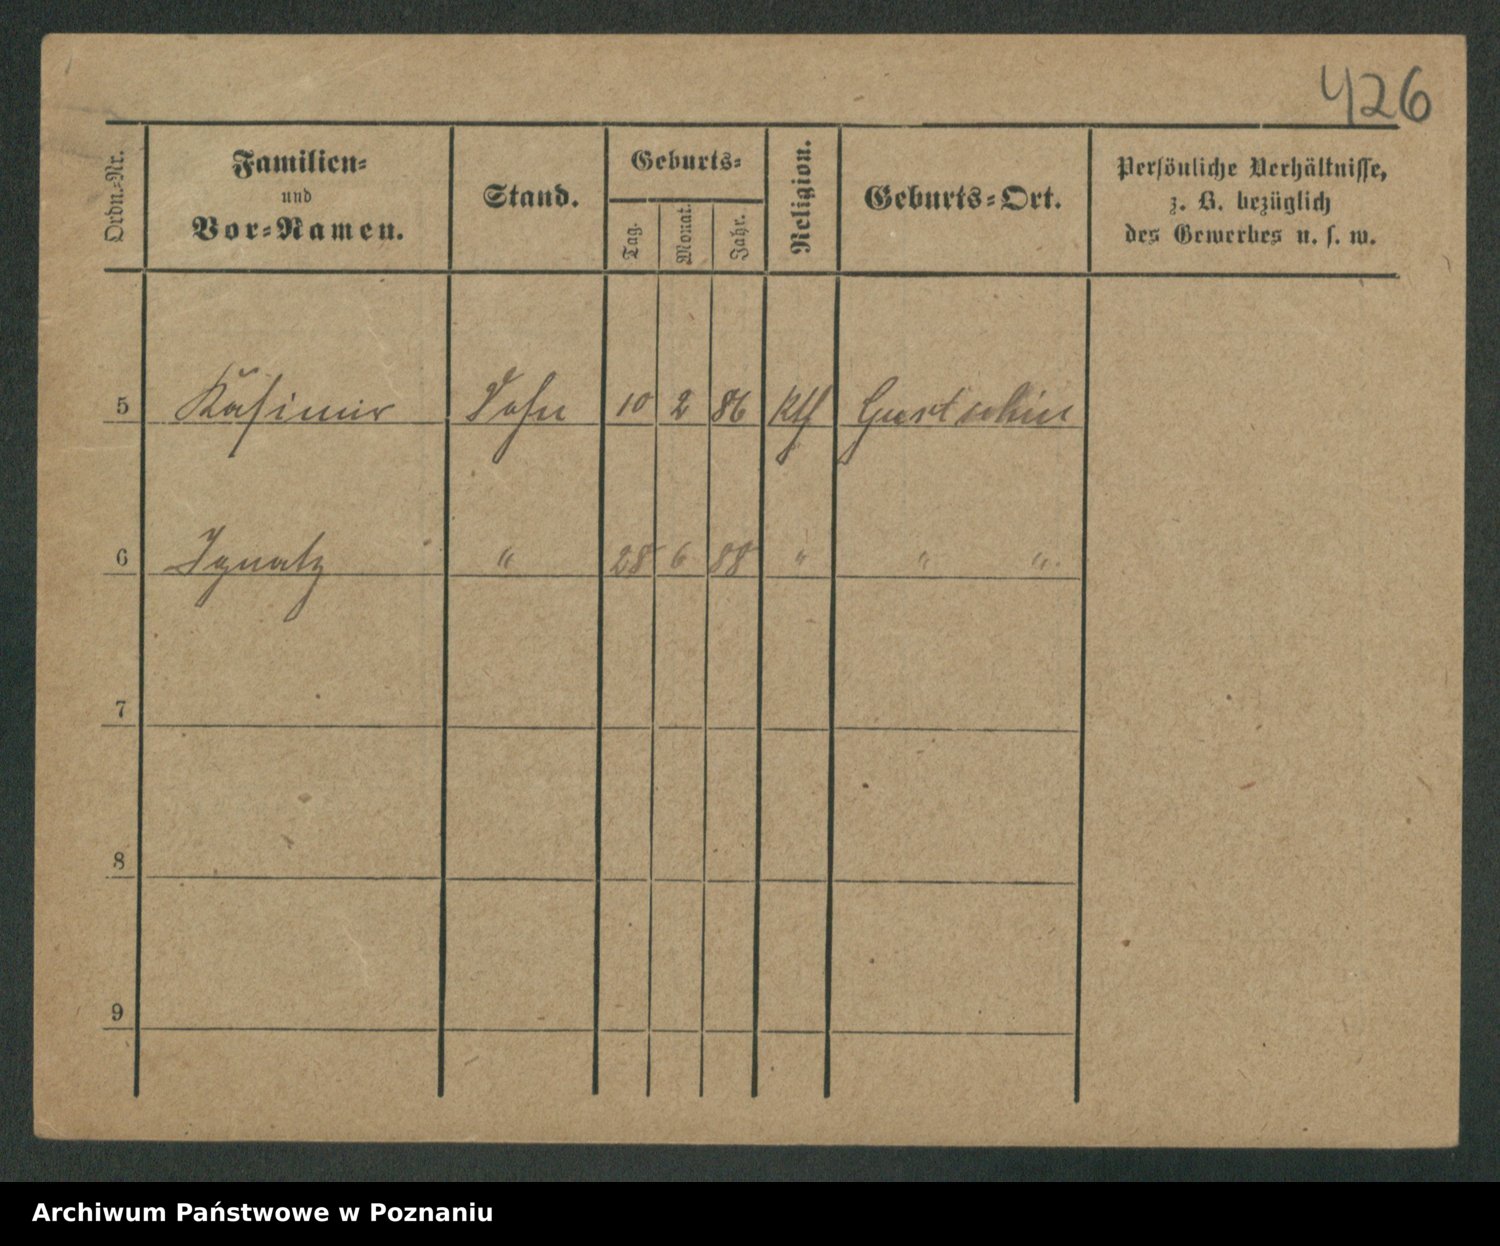 426
Ordn.-Nr.
Familien-
und
Vor-Namen.
Stand.
Geburts-
Tag.
Monat.
Jahr.
Religion.
Geburts-Ort.
Persönliche Verhältnisse,
z. B. bezüglich
des Gewerbes u. s. w.
5 Kasimir Sohn 10 2 86 kth
6 Ignatz " 28 6 88 " " "
7
8
9
Archiwum Państwowe w Poznaniu